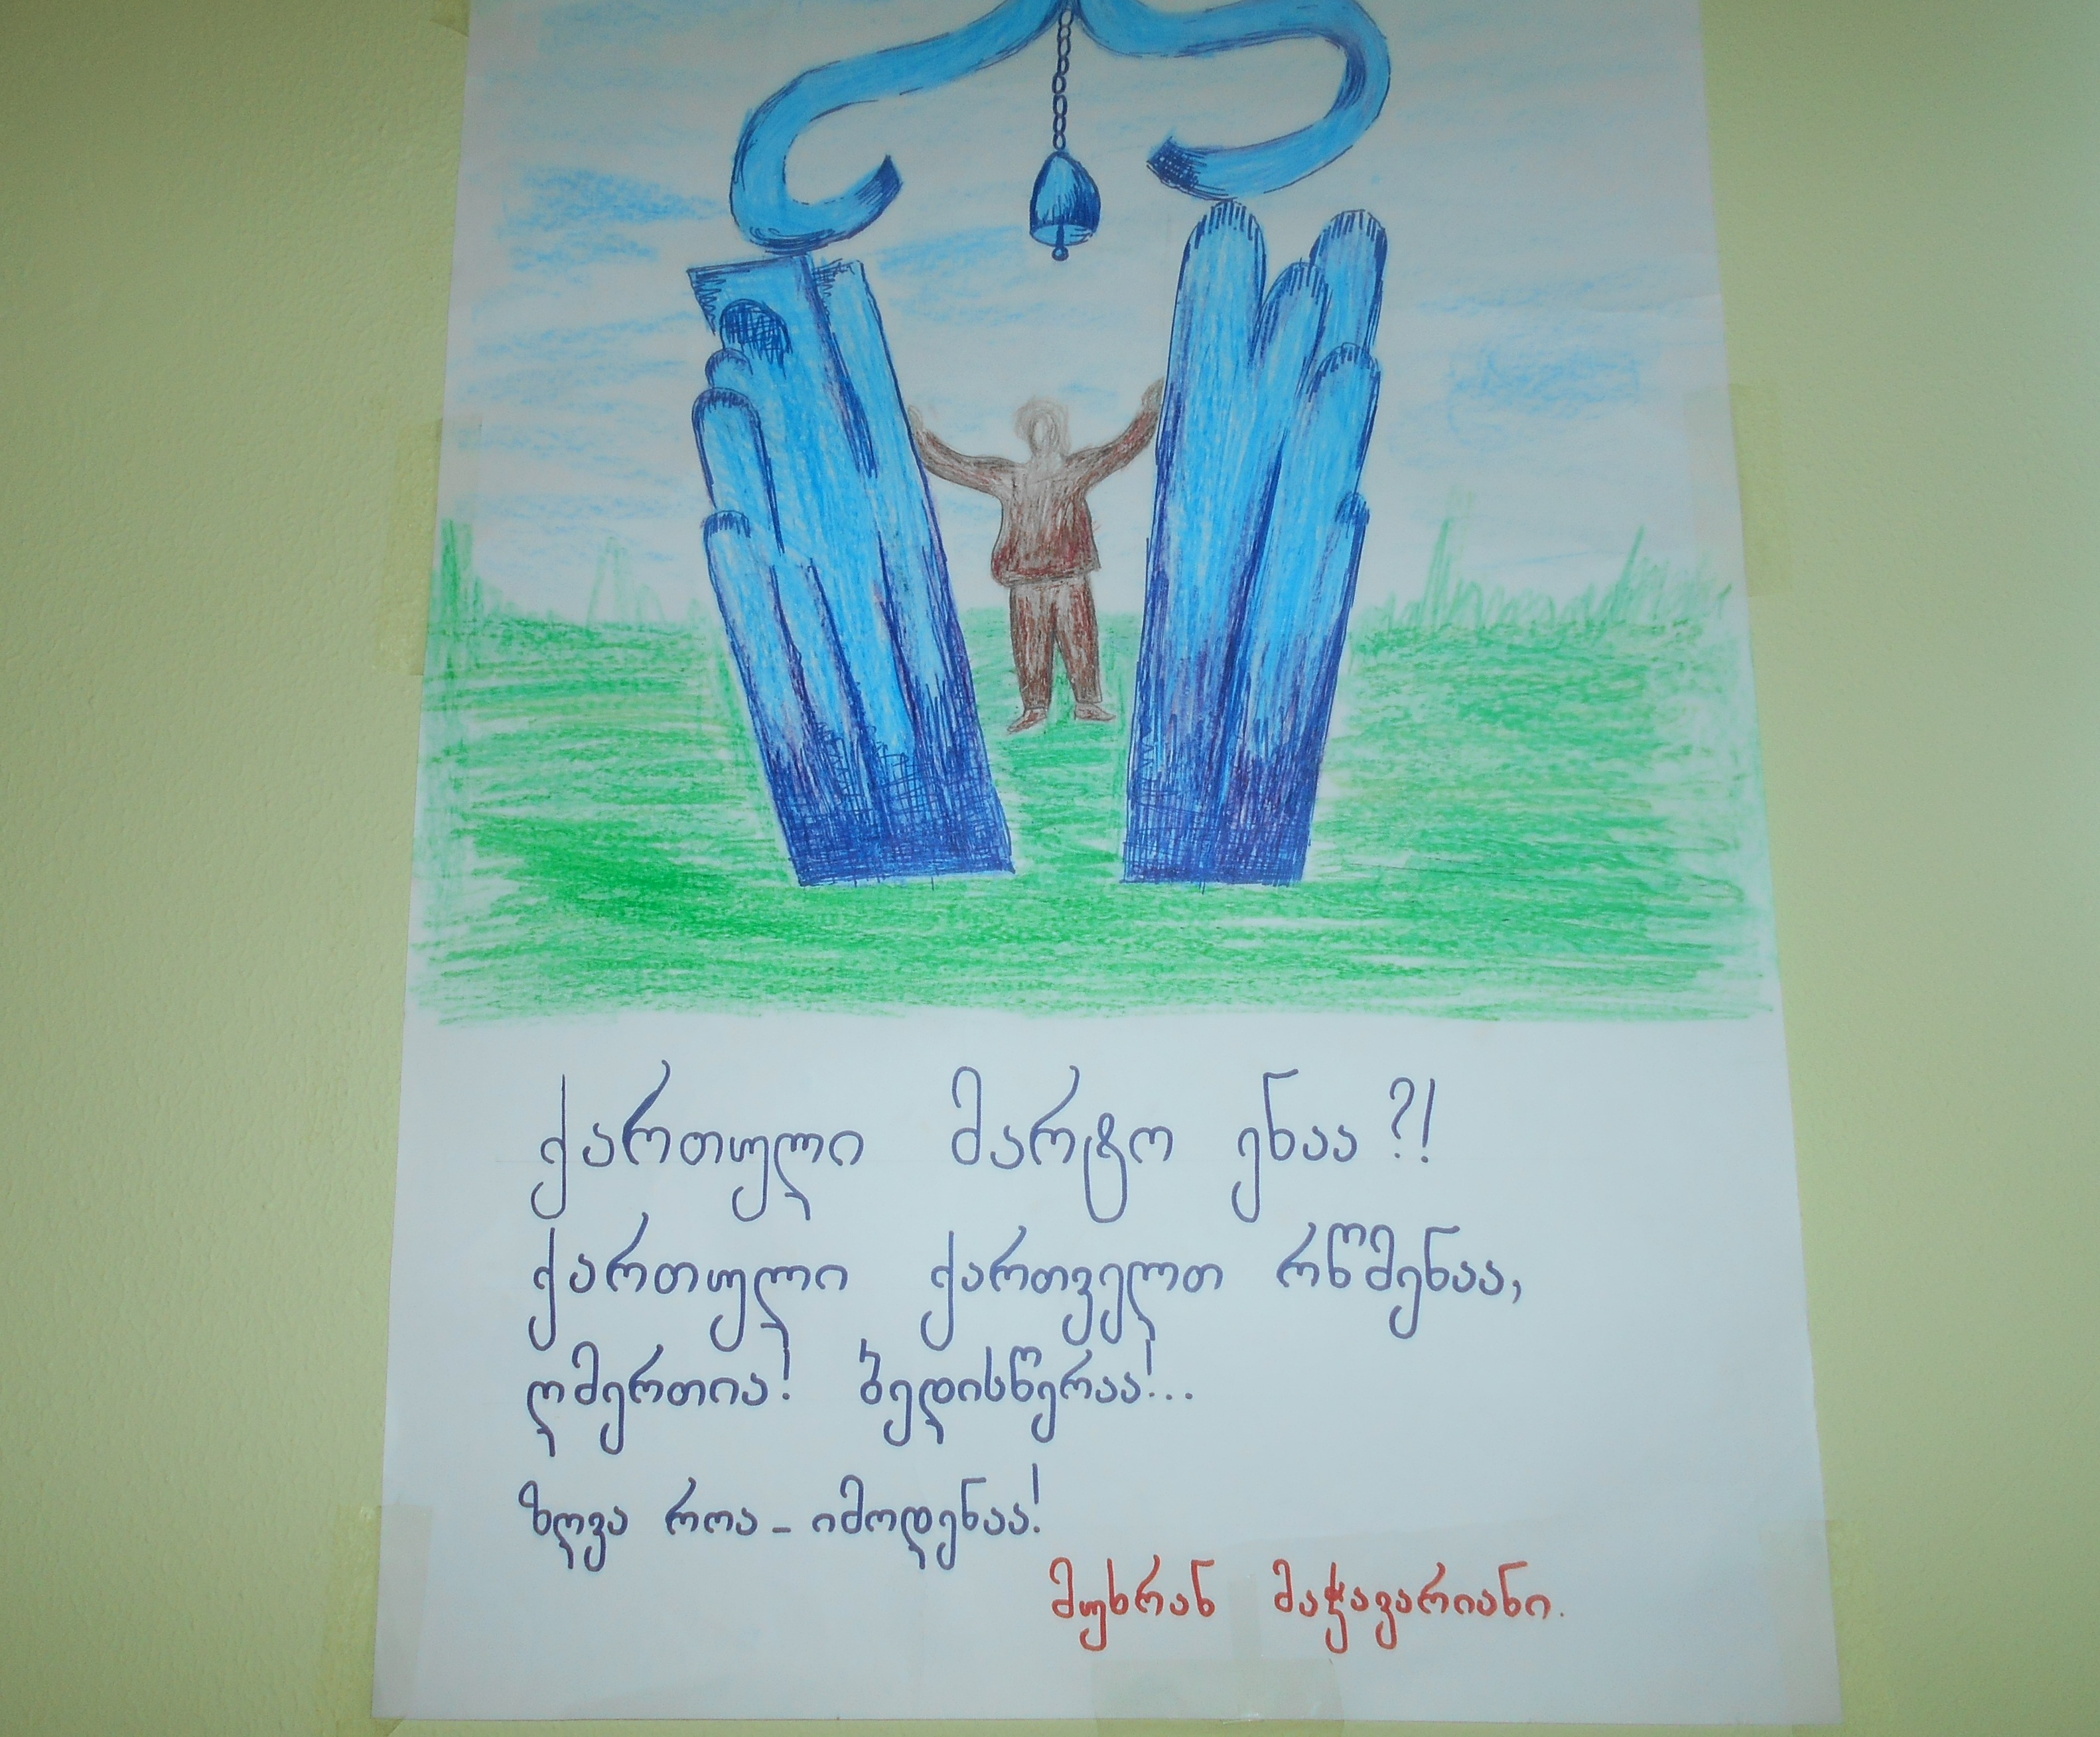 ქართული მარტო ენაა?!
ქართული ქართველთ რწმენაა,
ღმერთია! ბედისწერაა!...
ზღვა როა - იმოდენაა!
მუხრან მაჭავარიანი.